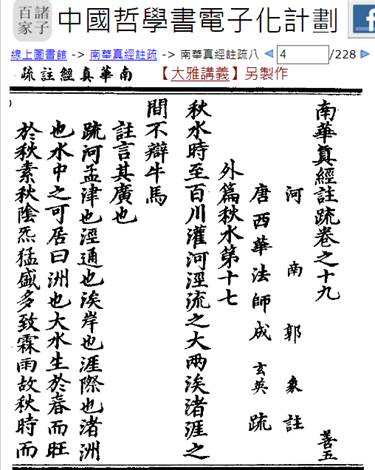 諸子百家
中國哲學書電子化計劃
線上圖書館 -> 南華真經註疏 -> 南華真經註疏八
4
/228
南華真經註疏
【大雅講義】另製作
南華真經註疏卷之十九
善五
河南郭象註
唐西華法師成玄英疏
外篇秋水第十七
秋水時至百川灌河涇流之大兩涘渚涯之
間不辯牛馬
註言其廣也
疏河孟津也涇通也涘岸也涯際也渚洲
也水中之可居曰洲也大水生於春而旺
於秋素秋陰炁猛盛多致霖雨故秋時而